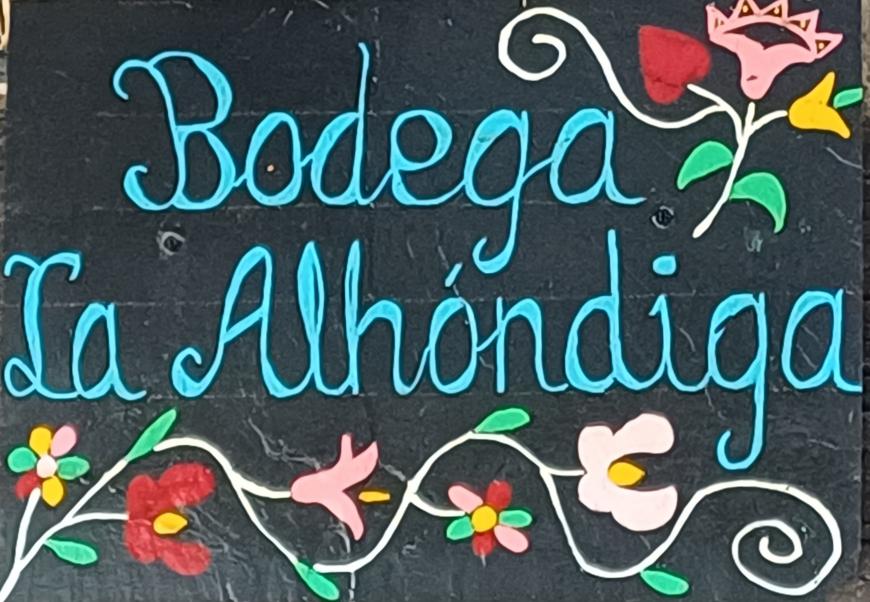 Bodega
La Alhóndiga